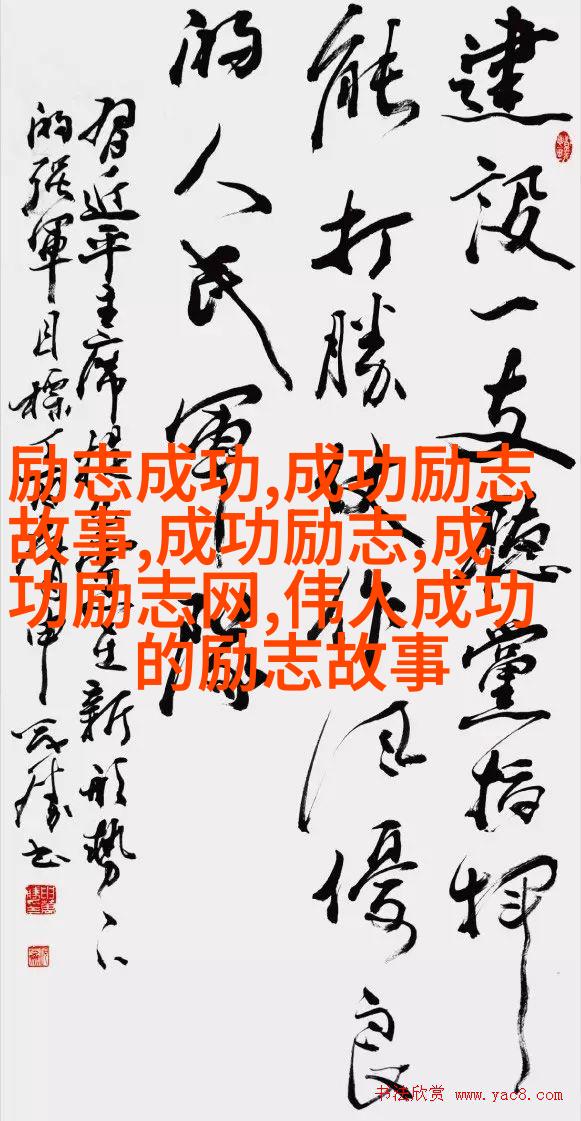 建設一支聽黨指揮
能打勝仗作風優良
的人民軍隊
習近平主席提出黨在新形勢下
的强軍目標
励志成功,成功励志
故事,成功励志,成
功励志网,伟人成功
的励志故事
书法欣赏 www.yac8.com